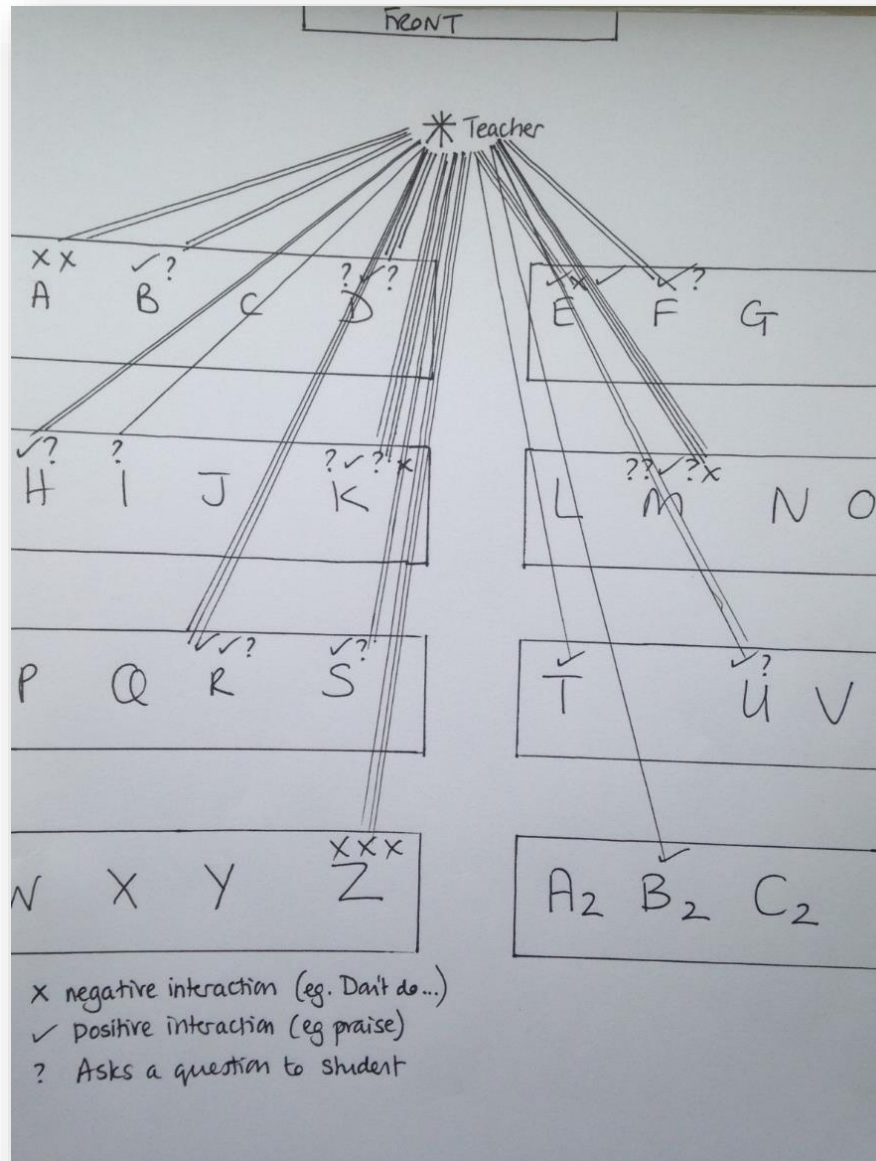 FRONT
Teacher
X X ✓ ? ? ✓ ? ✓ X ✓ ✓ ?
A B C D E F G
✓ ? ? ? ✓ ? X ? ? ✓ ? X
H I J K L M N O
✓ ✓ ? ✓ ? ✓ ✓ ?
P Q R S T U V
X X X ✓
X Y Z A2 B2 C2
X negative interaction (eg. Don't do...)
✓ positive interaction (eg praise)
? Asks a question to student